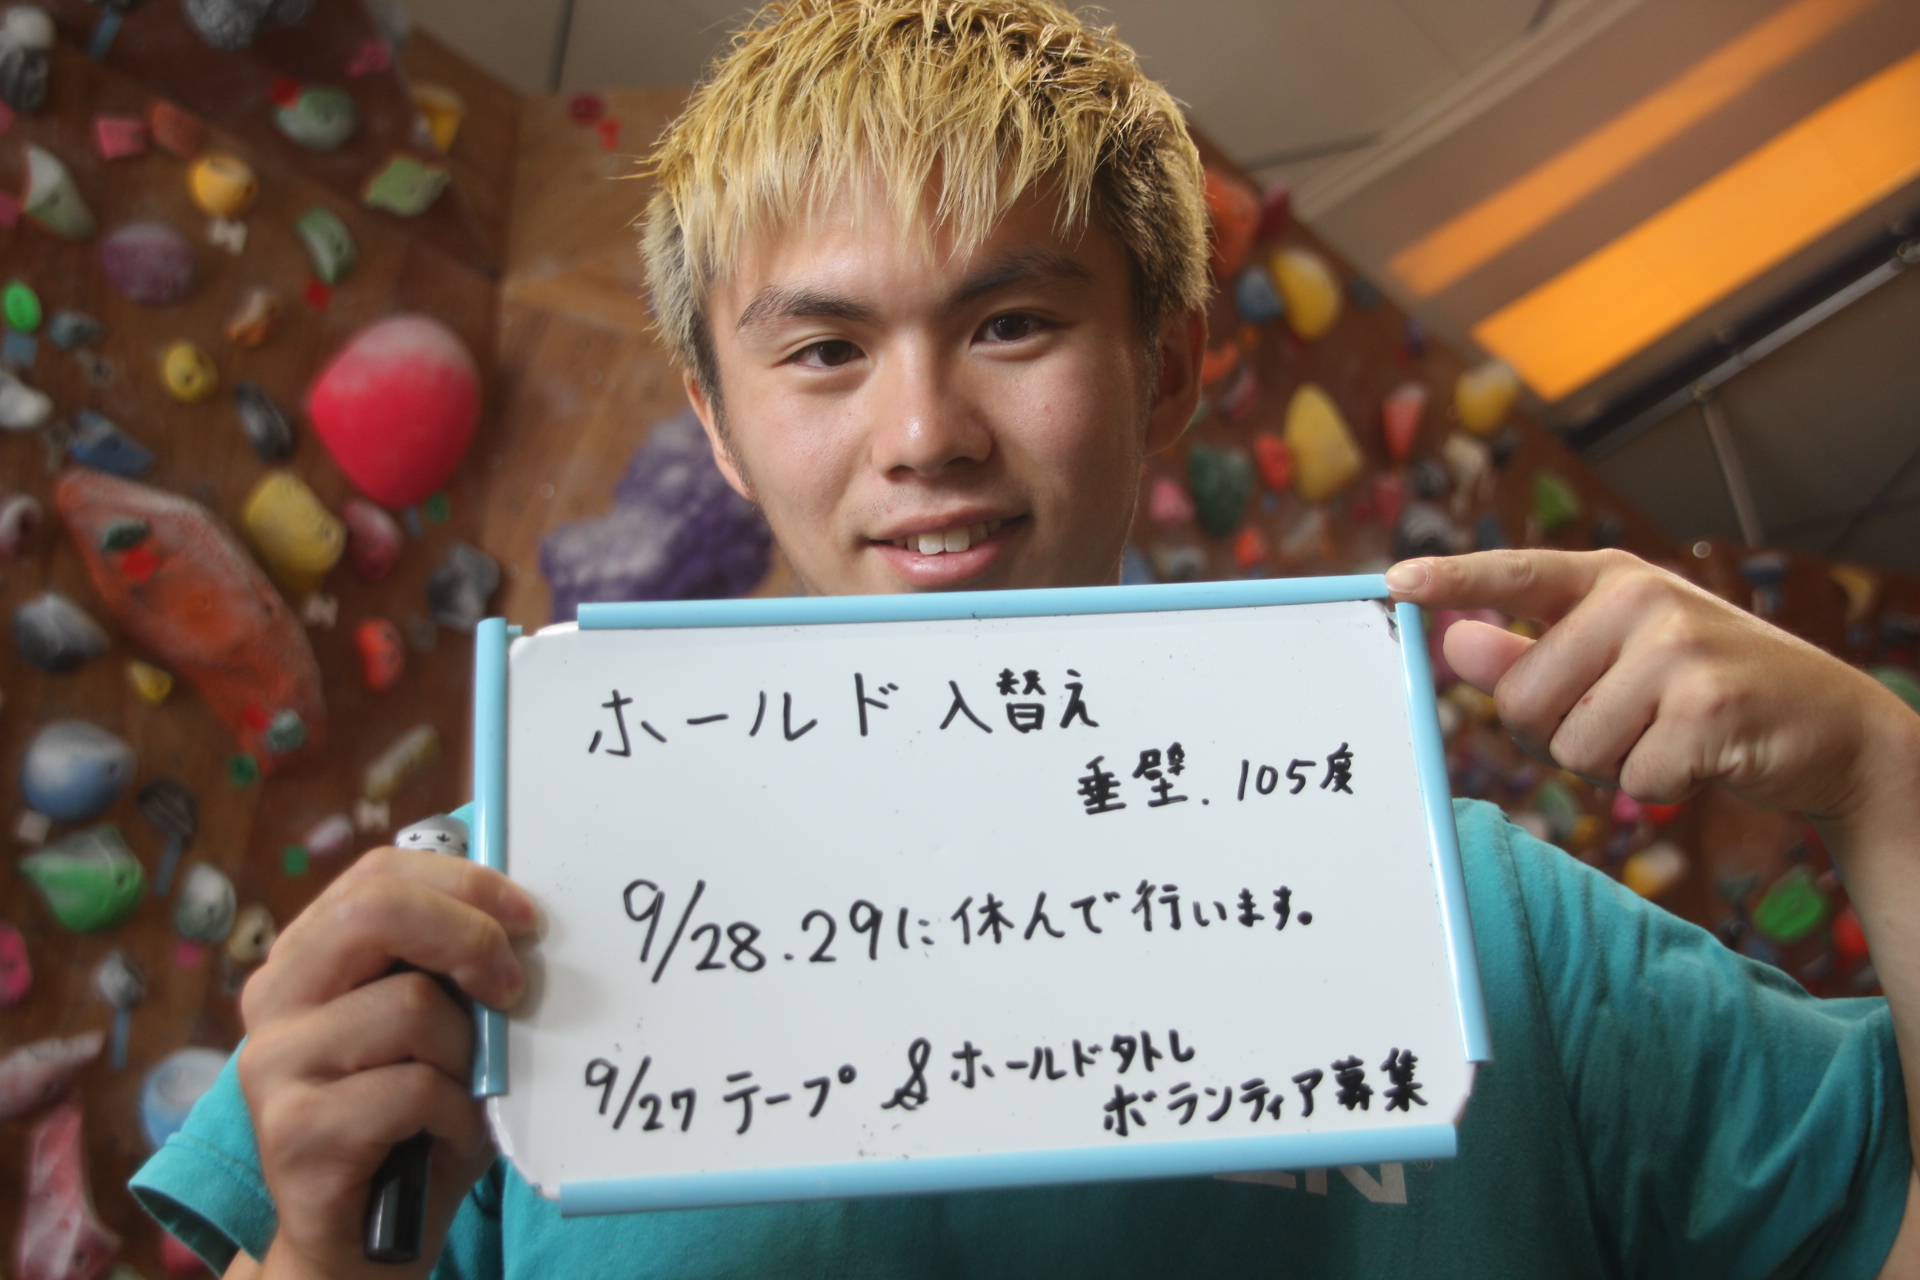 ホールド入替え
垂壁.105度
9/28.29に休んで行います。
9/27テープ&ホールド外し
ボランティア募集